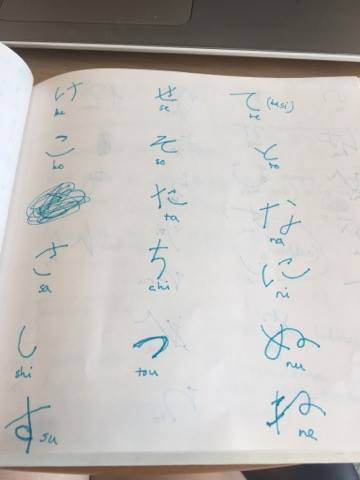 け せ て (kesi)
ke se te
こ そ と
ko so to
た な
ta na
さ ち に
sa chi ni
し つ ぬ
shi tou nu
す su ね
ne